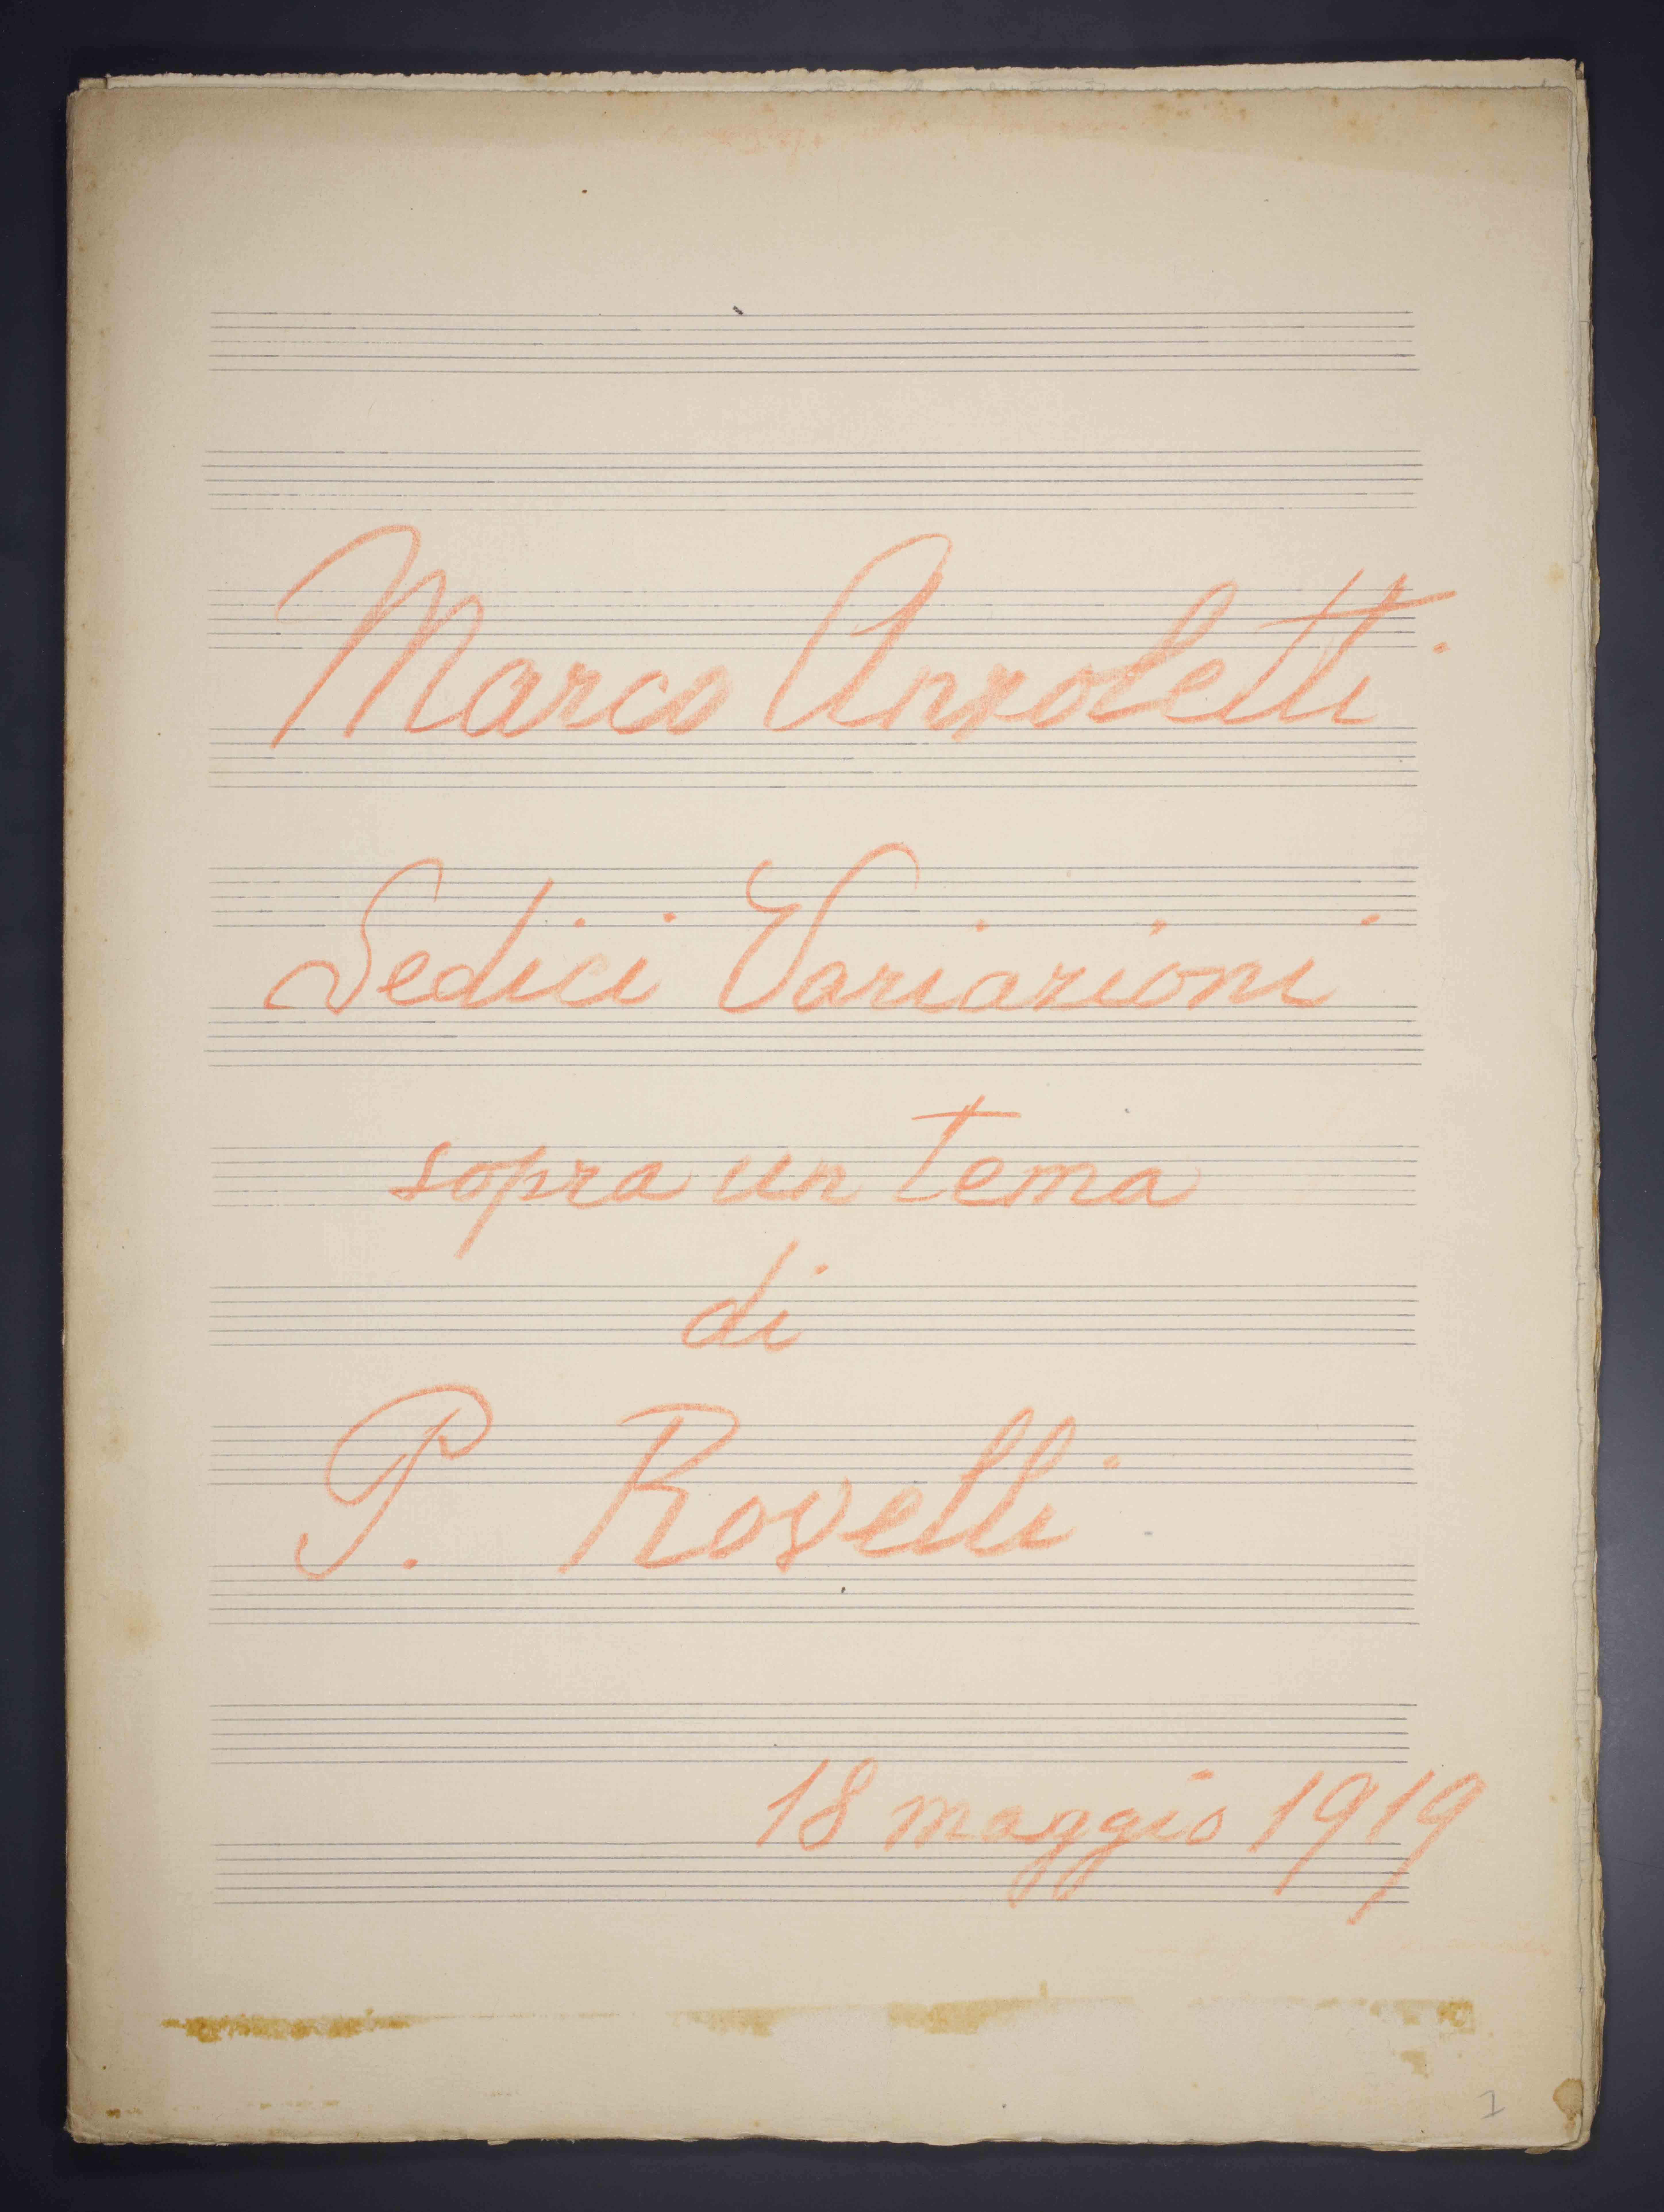 Marco Anzoletti
Sedici Variazioni
sopra un tema
di
P. Rovelli
18 maggio 1919
1